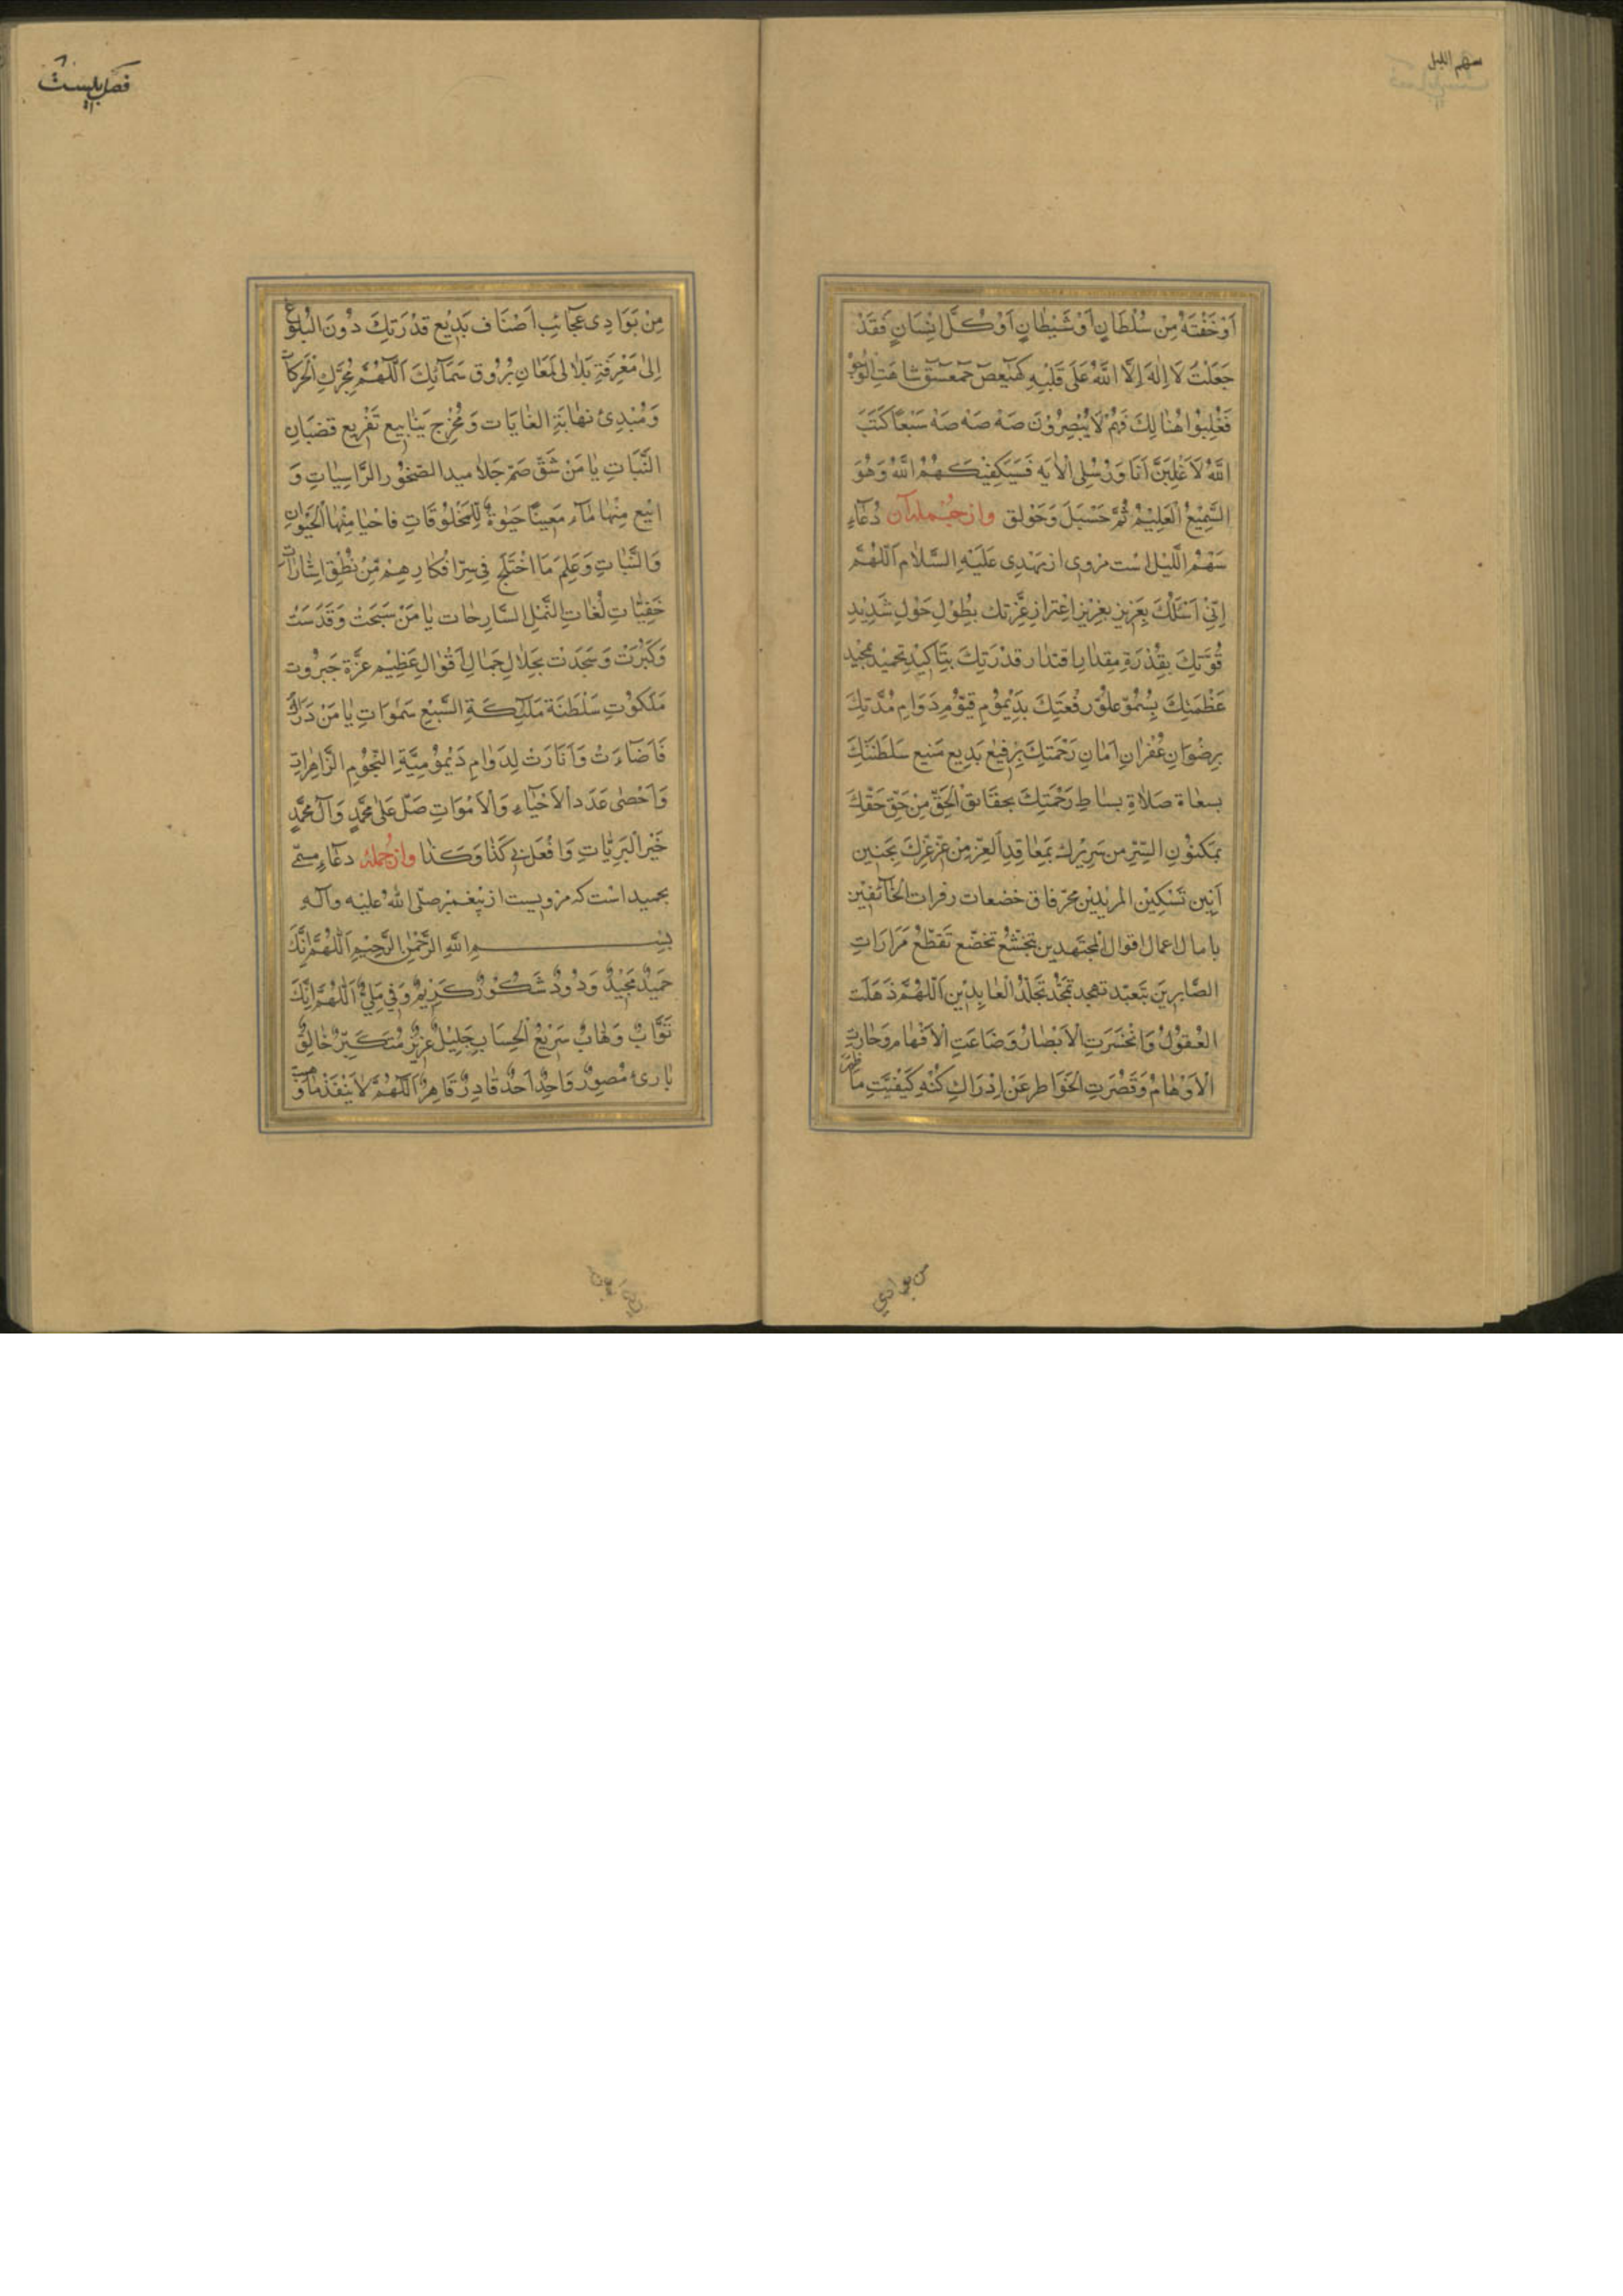 سهم اللیل
اَوْ خَفْتَهُ مِنْ سُلْطَانٍ اَوْ شَيْطَانٍ اَوْ كُلَّ اِنْسَانٍ فَقَدْ
جَعَلْتُ لَا اِلٰهَ اِلَّا اللّٰهُ عَلَى قَلْبِهِ كٓهٰيٰعٓصٓ حٓمٓعٓسٓقٓ شاهَتِ الْوُجُوهُ
فَغُلِبُوا هُنَالِكَ فَهُمْ لَا يُبْصِرُوْنَ صَهْ صَهْ صَهْ سَبْعًا كَتَبَ
اللّٰهُ لَاَغْلِبَنَّ اَنَا وَرُسُلِى الْاٰيَه فَسَيَكْفِيْكَهُمُ اللّٰهُ وَهُوَ
السَّمِيْعُ الْعَلِيْمُ ثُمَّ حَسْبَلَ وَحَوْلَقَ وازجمله آن دُعَآءِ
سَهْمُ اللَّيْل اسْت مروى از مَهْدِى عَلَيْهِ السَّلَام اَللّٰهُمَّ
اِنِّىْ اَسْئَلُكَ بِعَزِيْزِ تعْزِيْزِ اعْتِزازِ عِزَّتِك بِطَوْلِ حَوْلِ شَدِيْدِ
قُوَّتِكَ بِقُدْرَةِ مِقْدَارِ اقتدار قُدْرَتِكَ بِتَاكِيْدِ تحميد تمجيد
عَظَمَتِكَ بِسُمُوِّ عُلُوِّ رِفْعَتِكَ بِدَيْمُومِ قيّومِ دَوَامِ مُدَّتِكَ
بِرِضْوَانِ غُفْرَانِ اَمَانِ رَحْمَتِكَ بِرَفِيعِ بَدِيعِ مَنِيعِ سَلْطَنَتِكَ
بسعاة صَلَاةِ بِسَاطِ رَحْمَتِكَ بحقَائقِ الْحَقِّ مِنْ حَقِّ حَقِّكَ
بِمَكنُونِ السِّرِّ مِن سَرِيْرِك بِمَعَاقِدِ الْعِزِّ مِنْ عِزِّ عِزِّكَ بِحَنِينِ
اَنِينِ تَسْكِيْن المرِيْدِيْن بحرقات خضعات زفرات الْخَآئفِيْن
بامال اعمال اقوال المجتهدين بتخشّع تخضّع تقطّع مَرَارَاتِ
الصَّابِرِينَ بتَعبّد تهجد تمجّد تجلّد الْعَابِدِيْن اَللّٰهُمَّ ذَهَلَت
الْعُقُوْلُ وَانْحَسَرَتِ الْاَبْصَارُ وَضَاعَتِ الْاَفْهَام وَحَارَتِ
الْاَوْهَامُ وَقَصُرَتِ الْخَوَاطِر عَنْ اِدْرَاكِ كُنْهِ كَيْفِيَّتِ مَا ظَهَرَ
من بوادي
فصل بیست
مِنْ بَوَادِى عَجَآئِبِ اَصْنَاف بَدِيْعِ قُدْرَتِكَ دُونَ الْبُلُوغِ
اِلٰى مَعْرِفَةِ تَلَالى لَمَعَانِ بُرُوق سَمَآئِكَ اَللّٰهُمَّ مُحَرِّكِ الْحَرَكَاتِ
وَمُبْدِىَ نهَايَةِ الغَايَات وَمُخْرِج يَنَابِيعِ تَفْرِيعِ قضبَانِ
النَّبَاتِ يَا مَنْ شَقَّ صُمّ جَلَاميد الصّخُور الرَّاسِيَاتِ وَ
انبَع مِنْهَا مَآءً مَعِينًا حَيٰوةً لِلْمَخْلُوْقَاتِ فَاحْيَا مِنْهَا الْحَيَوَانِ
وَالنَّبَاتِ وَعَلِمَ مَا اخْتَلَجَ فِى سِرّ افْكَارِهِمْ مِّنْ نُطْقِ اِشَارَاتِ
خَفِيَّاتِ لُغَاتِ النَّمْلِ السَّارِحَات يَا مَنْ سَبَّحَتْ وَقَدَّسَتْ
وَكَبَّرَتْ وَسَجَدَتْ بجَلَالِ جَمَالِ اَقْوَالِ عَظِيْم عِزَّة جَبَرُوت
مَلَكُوْتِ سَلْطَنَة مَلٰٓئِكَةِ السَّبْعِ سَمٰوَاتِ يَا مَنْ دَارَتْ
فَاَضَآءَتْ وَاَنَارَتْ لِدَوَامِ دَيْمُوْمِيَّةِ النُّجُوْمِ الزَّاهِرَاتِ
وَاَحْصٰى عَدَد الْاَحْيَآءِ وَالْاَمْوَاتِ صَلِّ عَلٰى مُحَمَّدٍ وَآلِ مُحَمَّدٍ
خَيْرِ الْبَرِيَّاتِ وَافْعَلْ بى كَذَا وَكَذَا وازجمله دعاءِ مسمّى
بحميد است كه مرويست از پيغمبر صلّى اللّٰه عليه وآله
بِسْمِ اللّٰهِ الرَّحْمٰنِ الرَّحِيْمِ اَللّٰهُمَّ اِنَّكَ
حَمِيْدٌ مَجِيْدٌ وَدُودٌ شَكُوْرٌ كَرِيْمٌ وَفِىٌ مَلِىٌّ اَللّٰهُمَّ اِنَّكَ
تَوَّابٌ وَهَّابٌ سَرِيْعُ الْحِسَابِ جَلِيْلٌ عَزِيْزٌ مُتَكَبِّرٌ خَالِقٌ
بَارِئ مُصَوِّرٌ وَاحِدٌ اَحَدٌ قَادِرٌ قَاهِرٌ اَللّٰهُمَّ لَا يَنْفَدُ مَا وَهَبْتَ